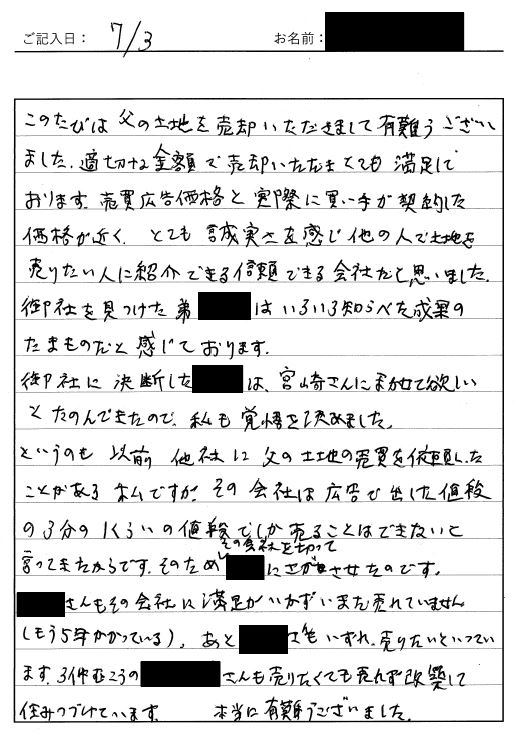 ご記入日： 7/3 お名前：
このたびは 父の土地を売却いただきまして有難うござい
ました。適切な金額で売却いただきとても満足して
おります。売買広告価格と実際に買い手が契約した
価格が近く、とても誠実さを感じ他の人で土地を
売りたい人に紹介できる信頼できる会社だと思いました。
御社を見つけた弟 はいろいろ知らべた成果の
たまものだと感じております。
御社に決断した は、宮崎さんにまかせて欲しい
とたのんできたので、私も覚悟を決めました。
というのも 以前 他社に父の土地の売買を依頼した
ことがある私ですが その会社は広告で出した値段
の3分の1くらいの値段でしか売ることはできないと
その会社を切って
言ってきたからです。そのため にさがさせたのです。
さんもその会社に満足がいかずいまだ売れていません
(もう5年かかっている)、あと さんもいずれ、売りたいといってい
ます。3件むこうの さんも売りたくても売れず改築して
住みつづけています。 本当に有難うございました。